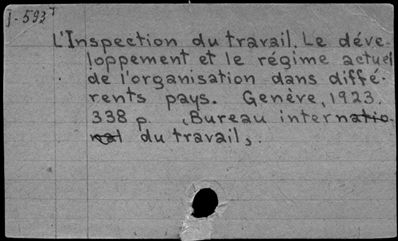 J-5937
L'Inspection du travail. Le déve-
loppement et le régime actuel
de l'organisation dans diffé-
rents pays. Genève, 1923.
338 p. (Bureau internatio-
nal du travail).